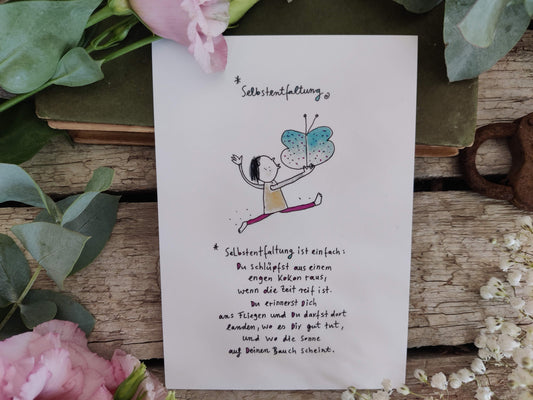 * Selbstentfaltung
* Selbstentfaltung ist einfach:
Du schlüpfst aus einem
engen Kokon raus,
wenn die Zeit reif ist.
Du erinnerst Dich
ans Fliegen und Du darfst dort
landen, wo es Dir gut tut,
und wo die Sonne
auf Deinen Bauch scheint.